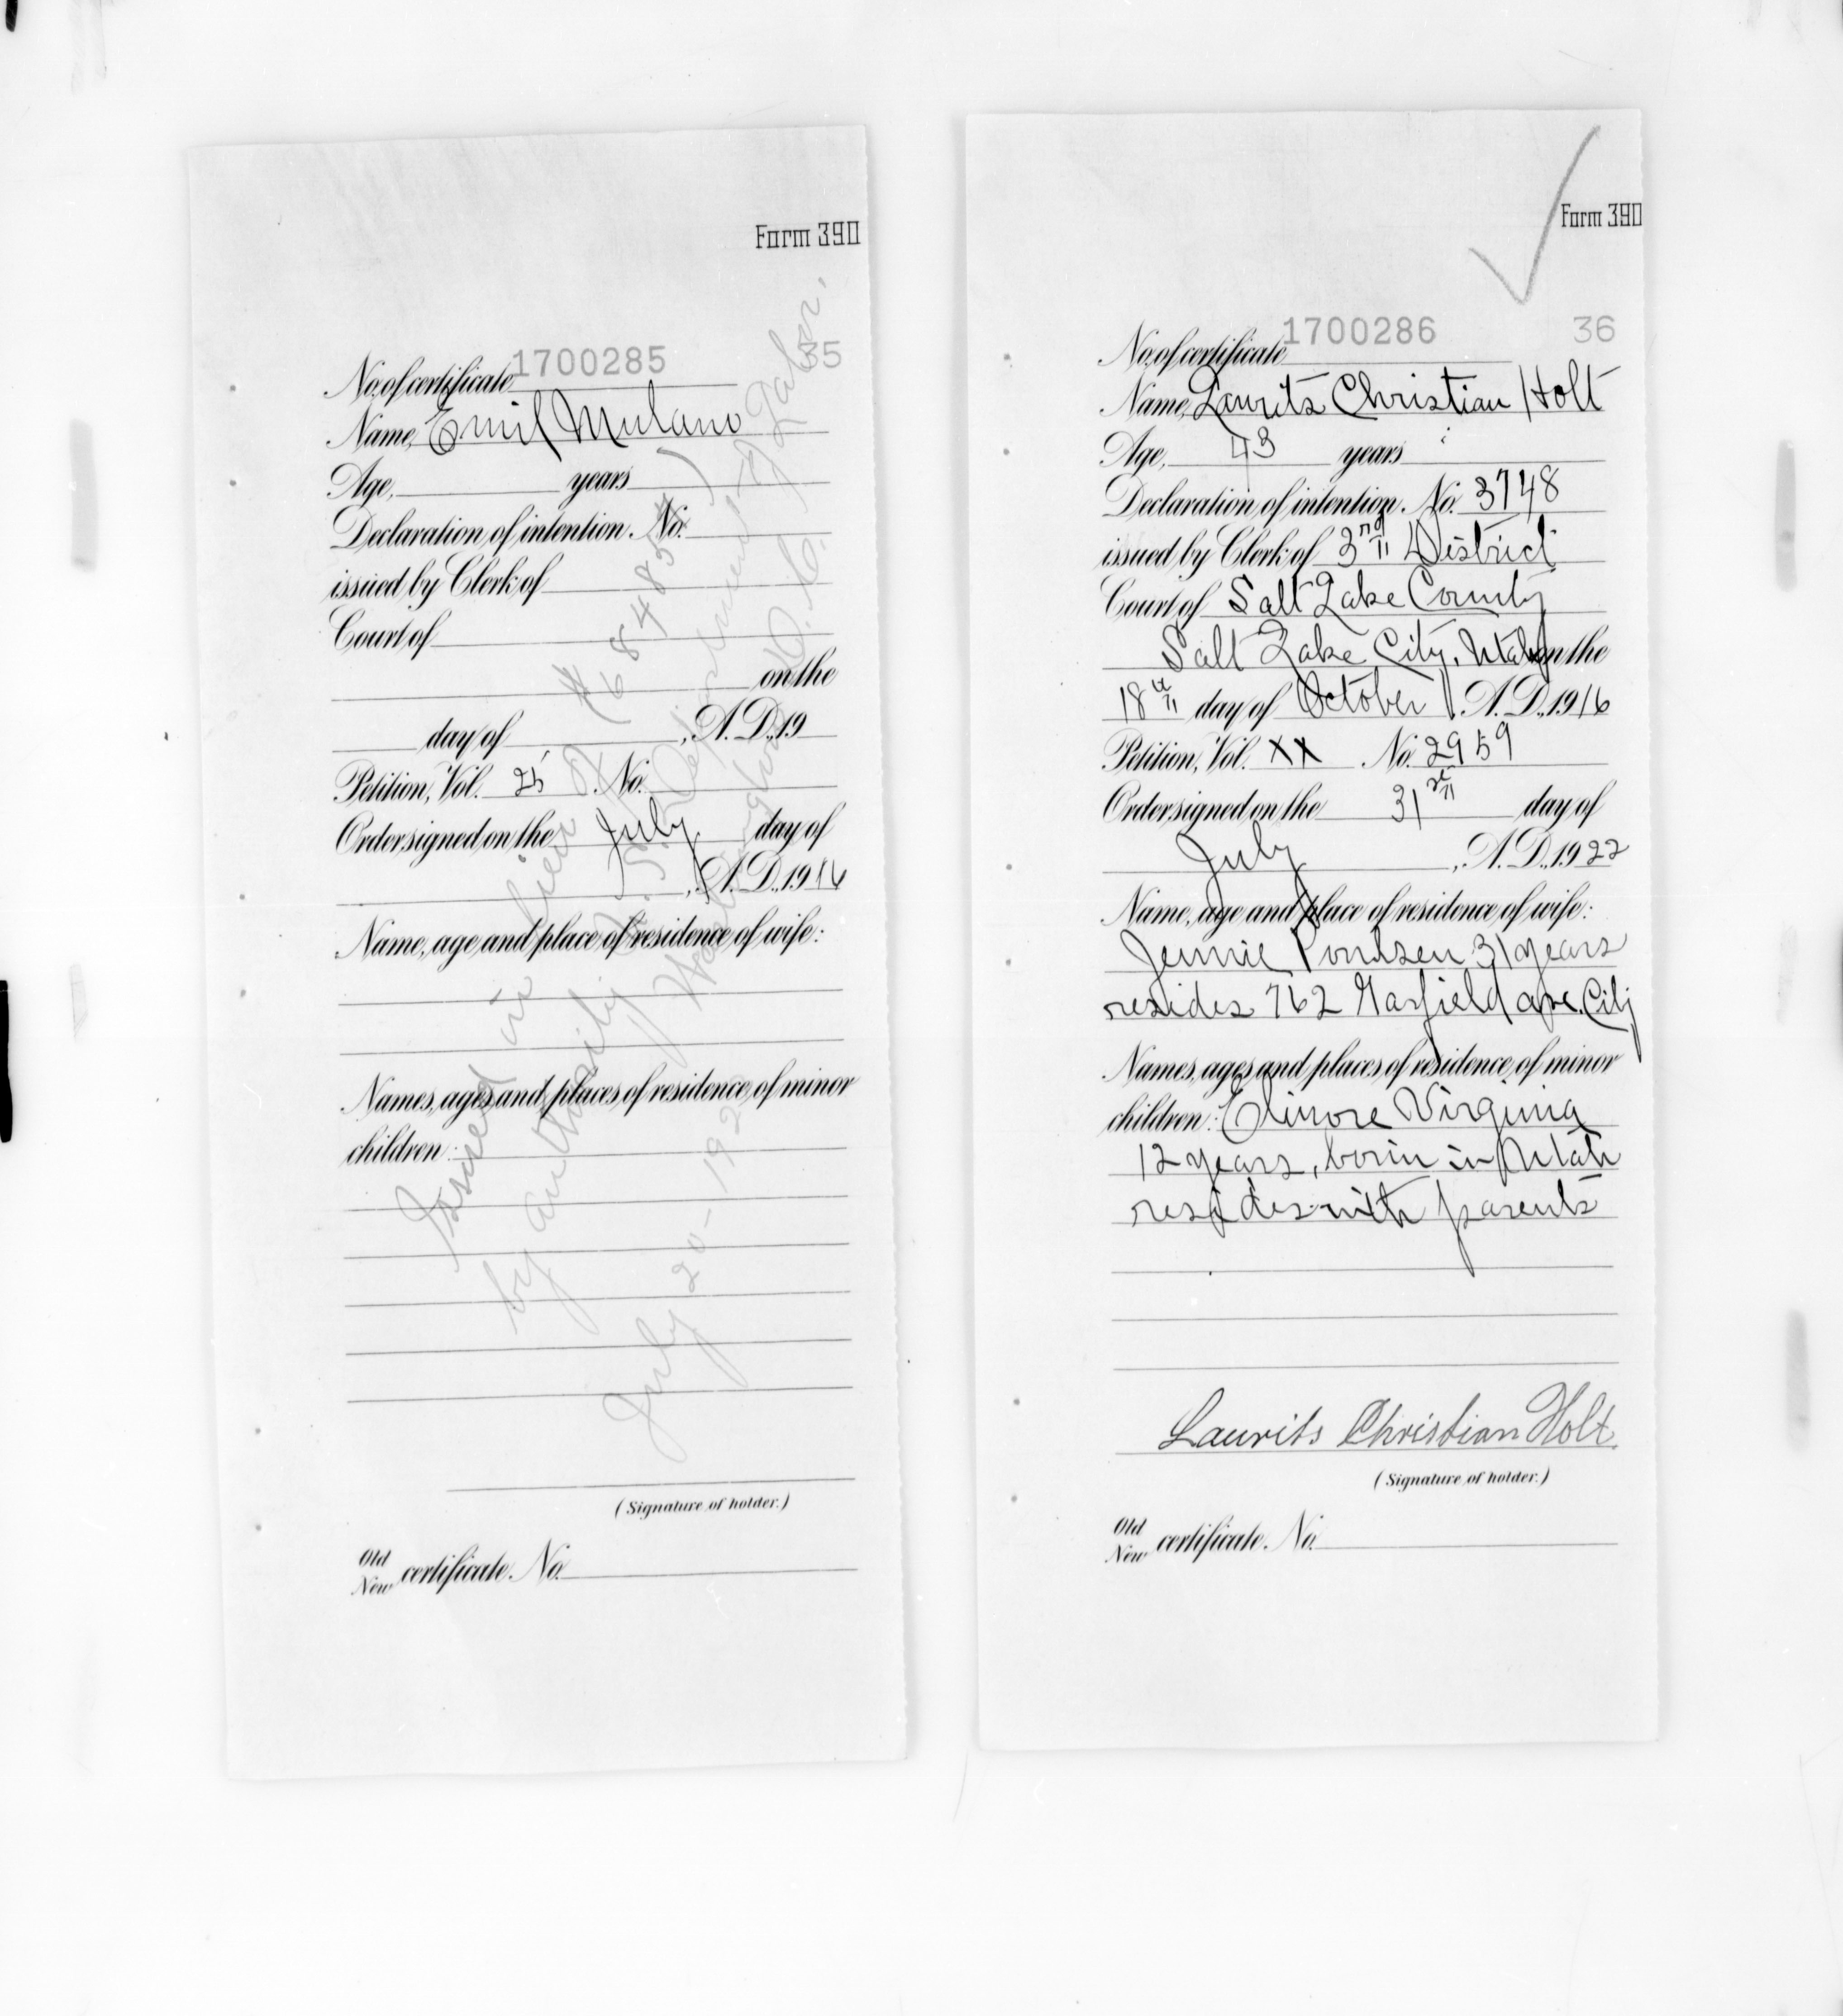 Form 390
No. of certificate 1700285 35
Name, Emil Mulano
Age, years
Declaration of intention. No.
issued by Clerk of
Court of
on the
day of , A. D., 19
Petition, Vol. 25 No.
Order signed on the July day of
, A. D., 1916
Name, age and place of residence of wife:
Names, ages and places of residence of minor
children:
Issued in lieu of # (684854)
by authority U. S. Department of Labor,
Washington D. C.
July 20-192
(Signature of holder.)
Old
New certificate. No.
Form 390
No. of certificate 1700286 36
Name, Laurits Christian Holt
Age, 43 years
Declaration of intention. No. 3748
issued by Clerk of 3rd District
Court of Salt Lake County
Salt Lake City, Utah on the
18th day of October, A. D., 1916
Petition, Vol. XX No. 2959
Order signed on the 31st day of
July, A. D., 1922
Name, age and place of residence of wife:
Jennie Poulsen 31 years
resides 762 Garfield ave. City
Names, ages and places of residence of minor
children: Elinore Virginia
12 years, born in Utah
resides with parents
Laurits Christian Holt.
(Signature of holder.)
Old
New certificate. No.